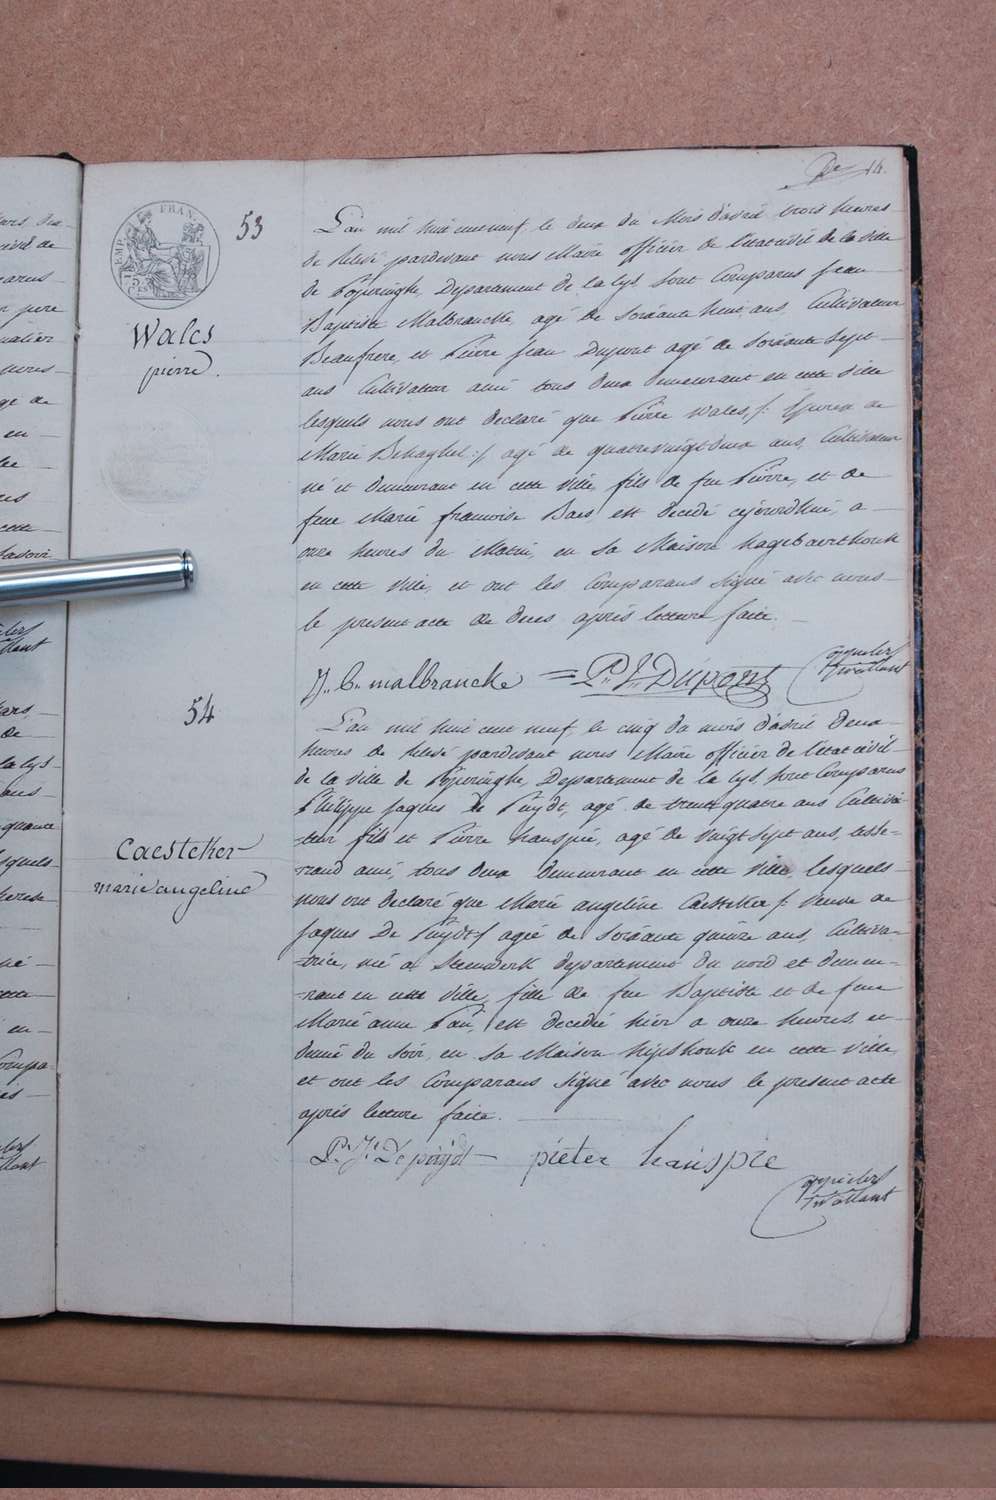 14.
EMP. FRAN.
53
Wales
pierre.
L'an mil huit cent neuf, le deux du Mois d'avril trois heures
de relevé pardevant nous Maire officier de l'état civil de la ville
de Poperinghe, Departement de la Lys, sont Comparus jean
Baptiste Malbrancke, agé de soixante huit ans, Cultivateur
Beaufrere, et Pierre jean Dupont agé de soixante sept
ans Cultivateur ami tous deux demeurant en cette ville
lesquels nous ont declaré que Pierre wales, /: Epoux de
Marie Behaghel :/ agé de quatrevingt deux ans, Cultivateur
né et demeurant en cette ville, fils de feu Pierre, et de
feue Marie francoise Baes est decedé cejourd'hui, a
onze heures du Matin, en sa Maison hagebaerthouk
en cette ville, et ont les Comparans signé avec nous
le present acte de deces après lecture faite.
J. B. malbrancke P. J. Dupont
54
Caesteker
marie angeline
L'an mil huit cent neuf, le cinq du mois d'avril deux
heures de relevé pardevant nous Maire officier de l'état civil
de la ville de Poperinghe, Departement de la Lys, sont Comparus
Philippe jaques de Puydt, agé de trente quatre ans Cultiva-
teur fils et Pierre hauspie, agé de vingt sept ans, tisse-
rand ami, tous deux demeurant en cette ville, lesquels
nous ont declaré que Marie angeline Caesteker /: veuve de
jaques De Puydt :/ agée de soixante quinze ans, Cultiva-
trice, né a Steenwerk departement du nord et demeu-
rant en cette ville, fille de feu Baptiste et de feue
Marie anne est decedée hier a onze heures, et
demie du soir, en sa Maison hipshouk en cette ville,
et ont les Comparans signé avec nous le present acte
après lecture faite.
P. J. De puydt pieter hauspie